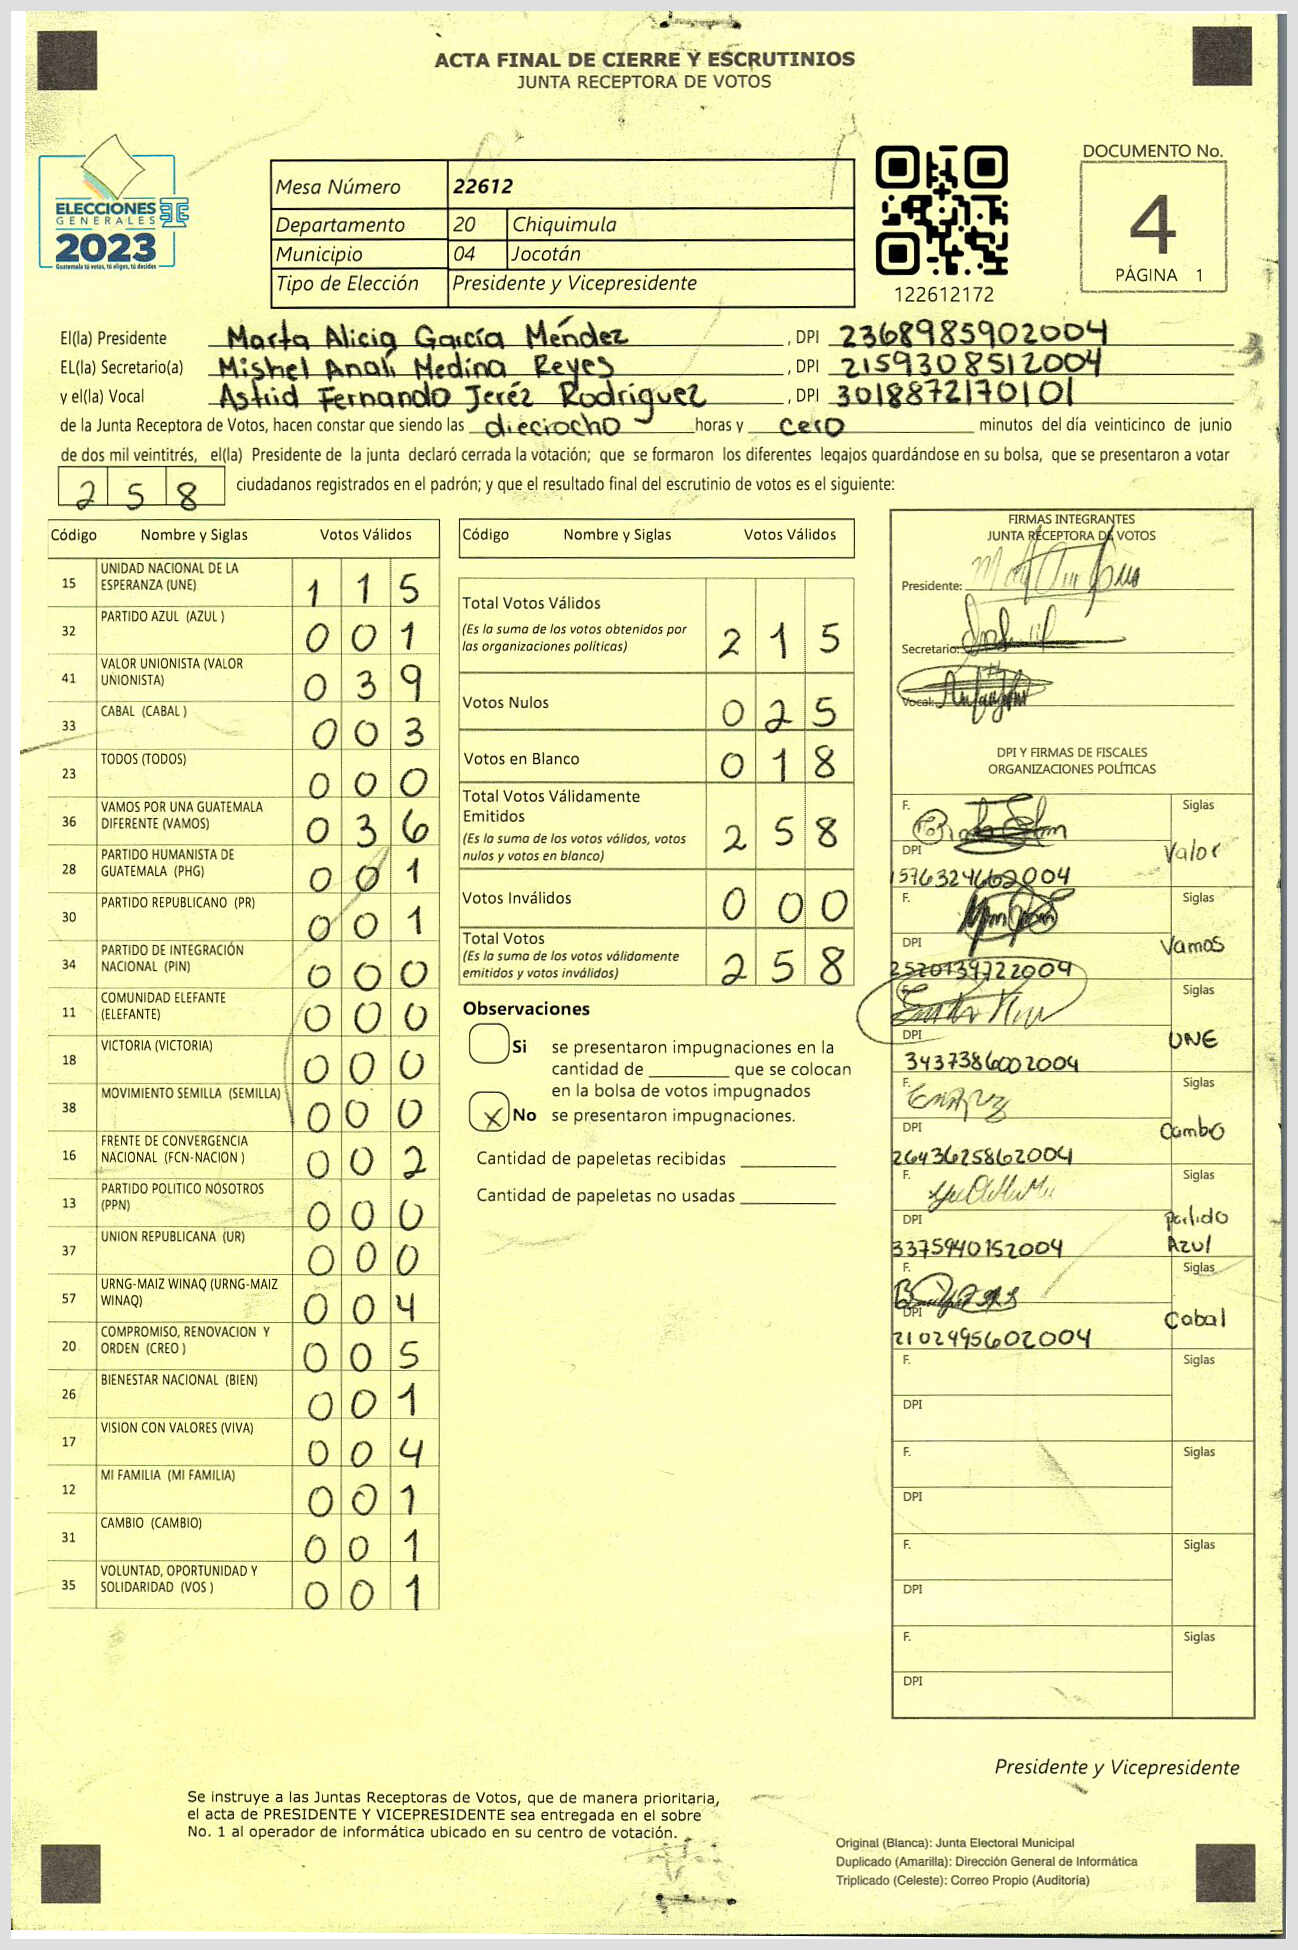 ACTA FINAL DE CIERRE Y ESCRUTINIOS
JUNTA RECEPTORA DE VOTOS
ELECCIONES
GENERALES
2023
Guatemala tú votas, tú eliges, tú decides
Mesa Número 22612
Departamento 20 Chiquimula
Municipio 04 Jocotán
Tipo de Elección Presidente y Vicepresidente
122612172
DOCUMENTO No.
4
PÁGINA 1
El(la) Presidente Marta Alicia García Méndez , DPI 2368985902004
EL(la) Secretario(a) Mishel Analí Medina Reyes , DPI 2159308512004
y el(la) Vocal Astrid Fernando Jeréz Rodríguez , DPI 3018872170101
de la Junta Receptora de Votos, hacen constar que siendo las dieciocho horas y cero minutos del día veinticinco de junio
de dos mil veintitrés, el(la) Presidente de la junta declaró cerrada la votación; que se formaron los diferentes legajos guardándose en su bolsa, que se presentaron a votar
258 ciudadanos registrados en el padrón; y que el resultado final del escrutinio de votos es el siguiente:
Código Nombre y Siglas Votos Válidos
15 UNIDAD NACIONAL DE LA ESPERANZA (UNE) 115
32 PARTIDO AZUL (AZUL ) 001
41 VALOR UNIONISTA (VALOR UNIONISTA) 039
33 CABAL (CABAL ) 003
23 TODOS (TODOS) 000
36 VAMOS POR UNA GUATEMALA DIFERENTE (VAMOS) 036
28 PARTIDO HUMANISTA DE GUATEMALA (PHG) 001
30 PARTIDO REPUBLICANO (PR) 001
34 PARTIDO DE INTEGRACIÓN NACIONAL (PIN) 000
11 COMUNIDAD ELEFANTE (ELEFANTE) 000
18 VICTORIA (VICTORIA) 000
38 MOVIMIENTO SEMILLA (SEMILLA) 000
16 FRENTE DE CONVERGENCIA NACIONAL (FCN-NACION ) 002
13 PARTIDO POLITICO NOSOTROS (PPN) 000
37 UNION REPUBLICANA (UR) 000
57 URNG-MAIZ WINAQ (URNG-MAIZ WINAQ) 004
20 COMPROMISO, RENOVACION Y ORDEN (CREO ) 005
26 BIENESTAR NACIONAL (BIEN) 001
17 VISION CON VALORES (VIVA) 004
12 MI FAMILIA (MI FAMILIA) 001
31 CAMBIO (CAMBIO) 001
35 VOLUNTAD, OPORTUNIDAD Y SOLIDARIDAD (VOS ) 001
Código Nombre y Siglas Votos Válidos
Total Votos Válidos 215
(Es la suma de los votos obtenidos por
las organizaciones políticas)
Votos Nulos 025
Votos en Blanco 018
Total Votos Válidamente
Emitidos 258
(Es la suma de los votos válidos, votos
nulos y votos en blanco)
Votos Inválidos 000
Total Votos 258
(Es la suma de los votos válidamente
emitidos y votos inválidos)
Observaciones
Si se presentaron impugnaciones en la
cantidad de ________ que se colocan
en la bolsa de votos impugnados
X No se presentaron impugnaciones.
Cantidad de papeletas recibidas
Cantidad de papeletas no usadas
FIRMAS INTEGRANTES
JUNTA RECEPTORA DE VOTOS
Presidente:
Secretario:
Vocal:
DPI Y FIRMAS DE FISCALES
ORGANIZACIONES POLÍTICAS
F. Siglas
DPI Valor
1576324662004
F. Siglas
DPI Vamos
2520139722004
F. Siglas
DPI UNE
3437386002004
F. Siglas
DPI Cambo
2643625862004
F. Siglas
DPI Partido Azul
3375940152004
F. Siglas
DPI Cabal
2102495602004
F. Siglas
DPI
F. Siglas
DPI
F. Siglas
DPI
F. Siglas
DPI
Presidente y Vicepresidente
Se instruye a las Juntas Receptoras de Votos, que de manera prioritaria,
el acta de PRESIDENTE Y VICEPRESIDENTE sea entregada en el sobre
No. 1 al operador de informática ubicado en su centro de votación.
Original (Blanca): Junta Electoral Municipal
Duplicado (Amarilla): Dirección General de Informática
Triplicado (Celeste): Correo Propio (Auditoría)